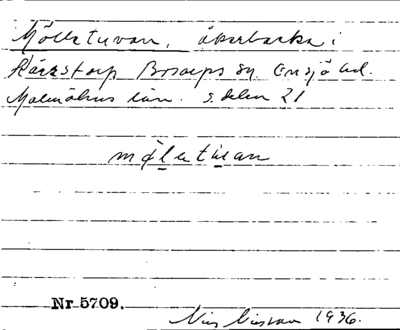 Möllstuvan, åkerbacke i
Kärrstorp Bosarps sn. Onsjö hd.
Malmöhus län. s. delen 21
mǫlatu̱an
Nr 5709.
Nils Nilsson 1936.